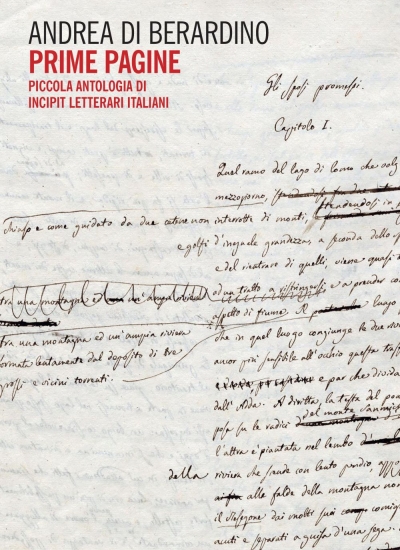 ANDREA DI BERARDINO
PRIME PAGINE
PICCOLA ANTOLOGIA DI
INCIPIT LETTERARI ITALIANI
Gli sposi promessi.
Capitolo I.
Quel ramo del lago di Como che volg
mezzogiorno,
e come guidato da due catene non interrotte di monti,
e golfi d'ineguale grandezza, a seconda dello
e del rientrare di quelli, viene quasi
ad un tratto a ristringersi e a prender co
tra una montagna ed un' ampia riviera
aspetto di fiume. Il luogo
tra una montagna ed un'ampia riviera
che in quel luogo congiunge le due rive
formata lentamente dal deposito di tre
ancor più sensibile all'occhio questa tras
grossi e vicini torrenti:
e par che divida
dall' Adda. A diritta, la testa del pon
posa su le radici del monte
l'altra è piantata nel lembo
della riviera che scende con lento pendio,
alle falde della montagna
il dai molti suoi
acuti e separati a guisa d'una sega.